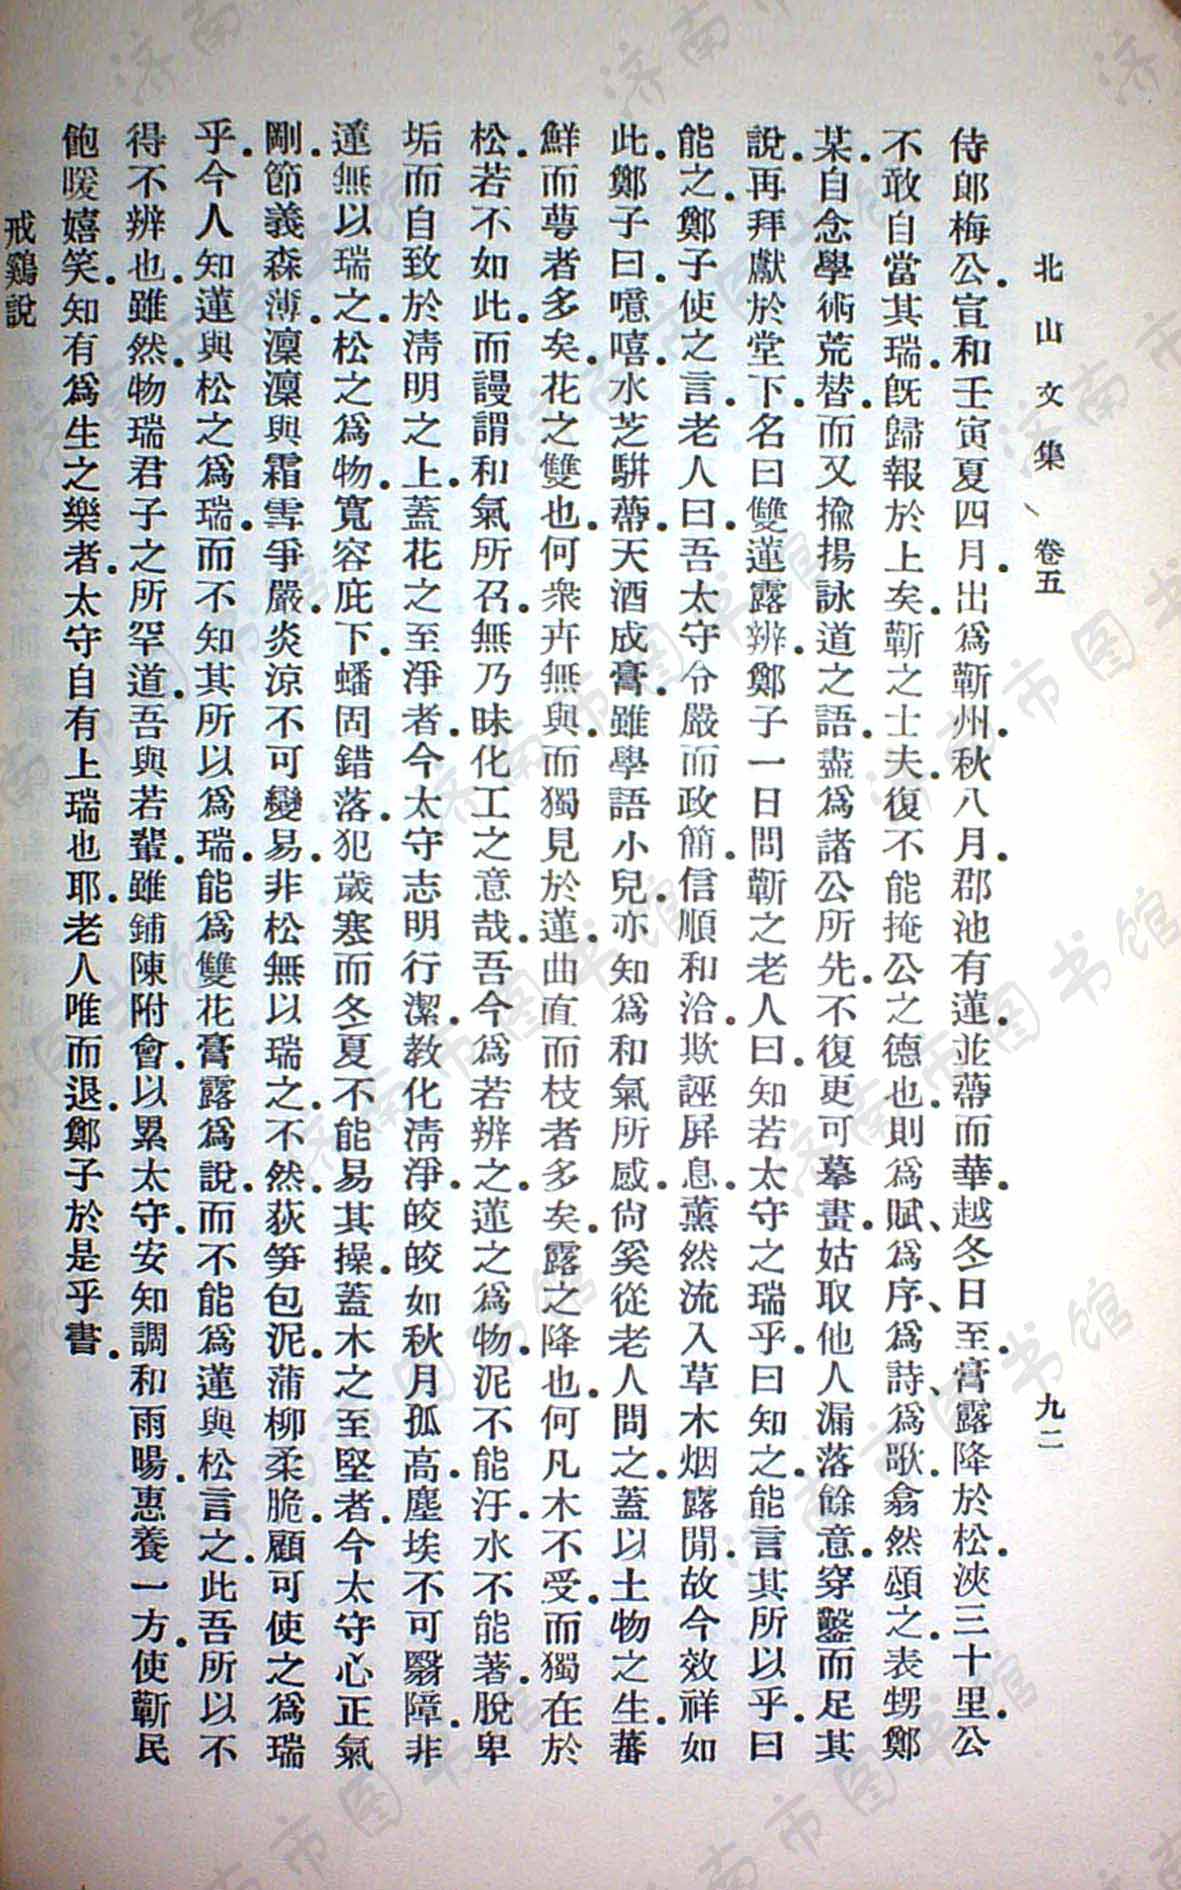 北山文集　卷五　九二
侍郎梅公宣和壬寅夏四月出爲蘄州秋八月郡池有蓮並蔕而華越冬日至膏露降於松浹三十里公
不敢自當其瑞旣歸報於上矣蘄之士夫復不能掩公之德也則爲賦、爲序、爲詩、爲歌翕然頌之表甥鄭
某自念學術荒替而又揄揚詠道之語盡爲諸公所先不復更可摹畫姑取他人漏落餘意穿鑿而足其
說再拜獻於堂下名曰雙蓮露辨鄭子一日問蘄之老人曰知若太守之瑞乎曰知之能言其所以乎曰
能之鄭子使之言老人曰吾太守令嚴而政簡信順和洽欺誣屏息薰然流入草木烟露閒故今效祥如
此鄭子曰噫嘻水芝騈蔕天酒成膏雖學語小兒亦知爲和氣所感尙奚從老人問之蓋以土物之生蕃
鮮而蕚者多矣花之雙也何衆卉無與而獨見於蓮曲直而枝者多矣露之降也何凡木不受而獨在於
松若不如此而謾謂和氣所召無乃昧化工之意哉吾今爲若辨之蓮之爲物泥不能汙水不能著脫卑
垢而自致於淸明之上蓋花之至淨者今太守志明行潔教化淸淨皎皎如秋月孤高塵埃不可翳障非
蓮無以瑞之松之爲物寬容庇下蟠固錯落犯歲寒而冬夏不能易其操蓋木之至堅者今太守心正氣
剛節義森薄凜凜與霜雪爭嚴炎涼不可變易非松無以瑞之不然荻笋包泥蒲柳柔脆顧可使之爲瑞
乎今人知蓮與松之爲瑞而不知其所以爲瑞能爲雙花膏露爲說而不能爲蓮與松言之此吾所以不
得不辨也雖然物瑞君子之所罕道吾與若輩雖鋪陳附會以累太守安知調和雨暘惠養一方使蘄民
飽暖嬉笑知有爲生之樂者太守自有上瑞也耶老人唯而退鄭子於是乎書
戒鷄說